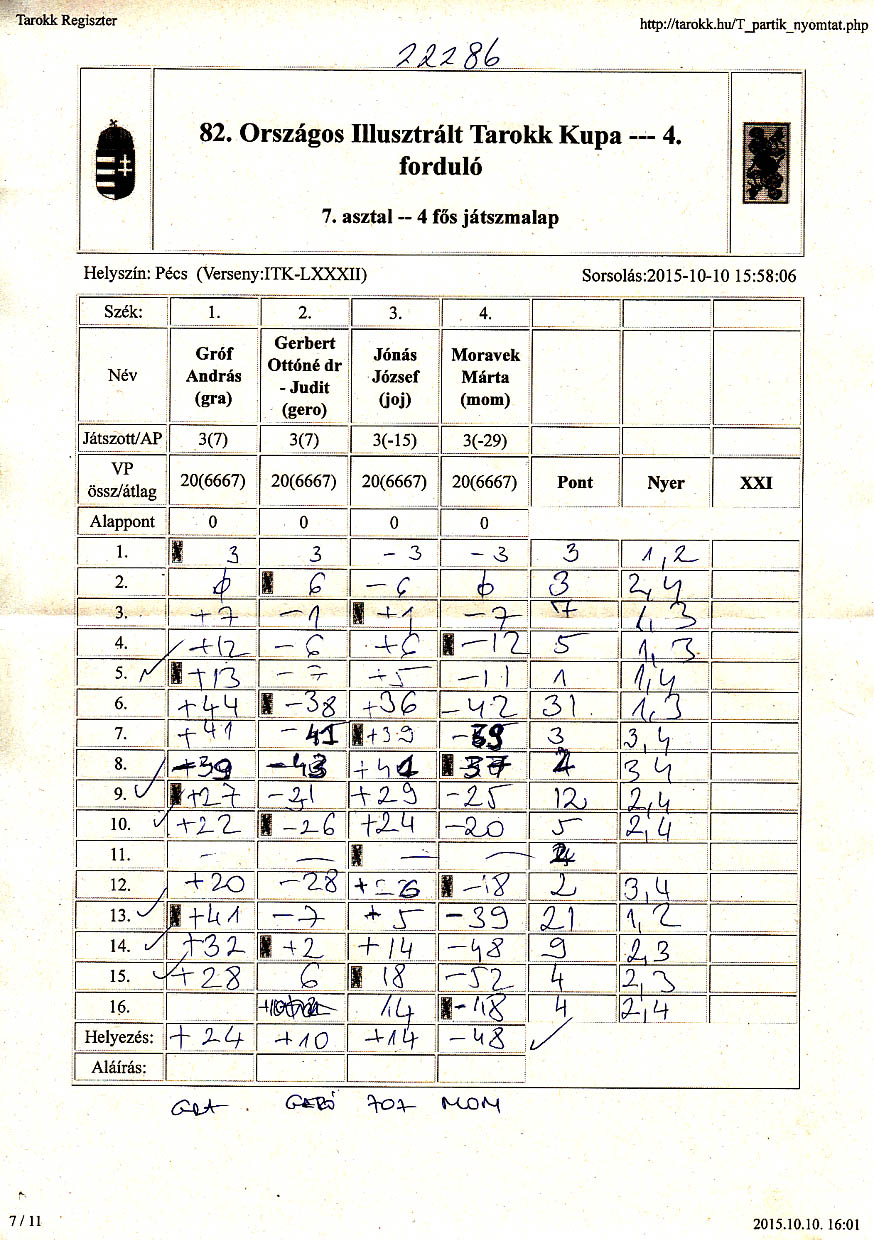 Tarokk Regiszter
http://tarokk.hu/T_partik_nyomtat.php
22286
82. Országos Illusztrált Tarokk Kupa --- 4.
forduló
7. asztal -- 4 fős játszmalap
Helyszín: Pécs (Verseny:ITK-LXXXII)
Sorsolás:2015-10-10 15:58:06
Szék: 1. 2. 3. 4.
Név Gróf András (gra) Gerbert Ottóné dr - Judit (gero) Jónás József (joj) Moravek Márta (mom)
Játszott/AP 3(7) 3(7) 3(-15) 3(-29)
VP össz/átlag 20(6667) 20(6667) 20(6667) 20(6667) Pont Nyer XXI
Alappont 0 0 0 0
1. 3 3 -3 -3 3 1,2
2. 0 6 -6 0 3 2,4
3. +7 -1 +1 -7 7 1,3
4. +12 -6 +6 -12 5 1,3
5. +13 -7 +5 -11 1 1,4
6. +44 -38 +36 -42 31 1,3
7. +41 -41 +39 -39 3 3,4
8. +39 -43 +41 37 2 3 4
9. +27 -31 +29 -25 12 2,4
10. +22 -26 +24 -20 5 2,4
11. - - - -
12. +20 -28 +26 -18 2 3,4
13. +41 -7 +5 -39 21 1,2
14. +32 +2 +14 -48 9 2,3
15. +28 6 18 -52 4 2,3
16. 14 -48 4 2,4
Helyezés: +24 +10 +14 -48
Aláírás:
GRA GERŐ JOJ MOM
7 / 11
2015.10.10. 16:01